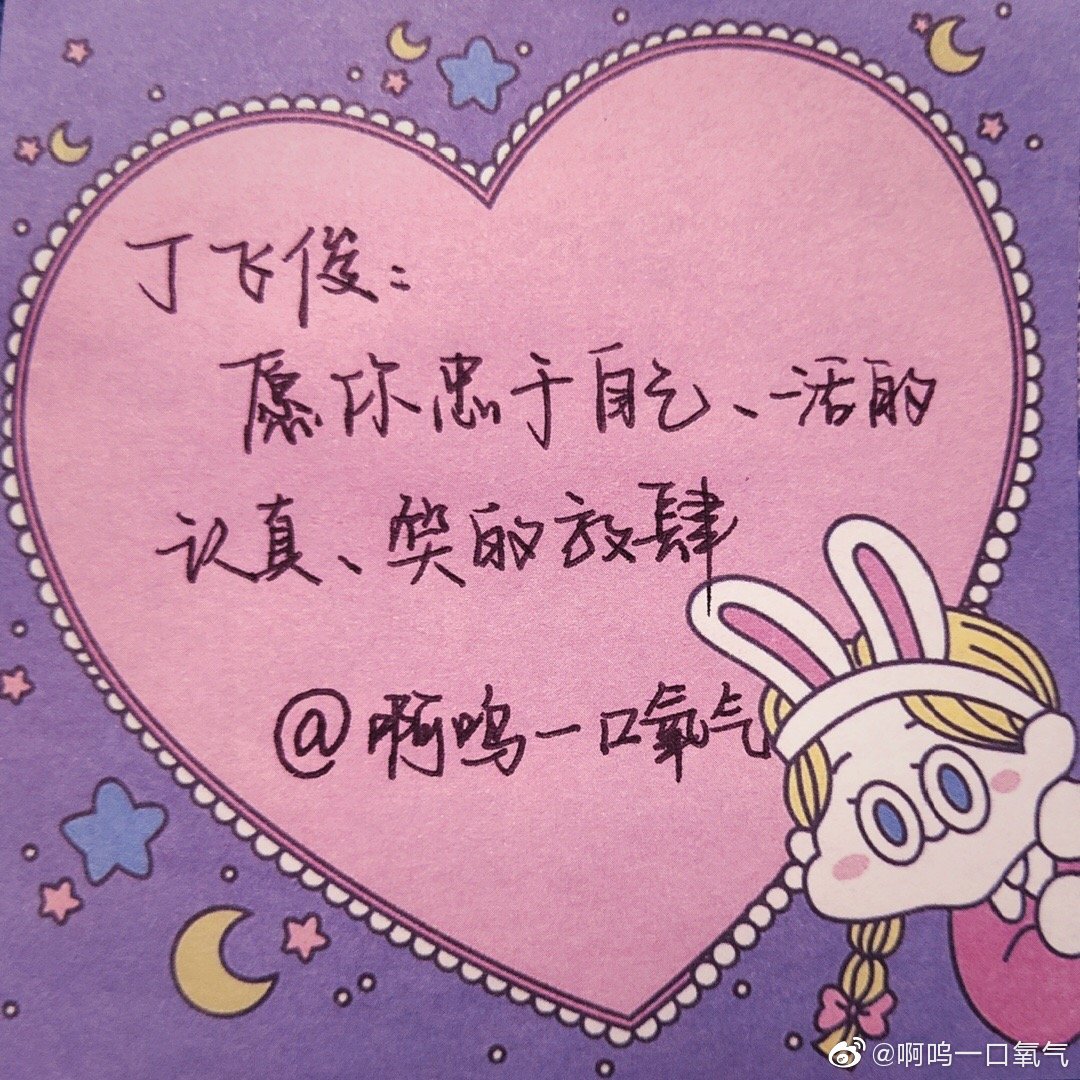 丁飞俊：
愿你忠于自己、活的
认真、笑的放肆
@啊呜一口氧气
@啊呜一口氧气